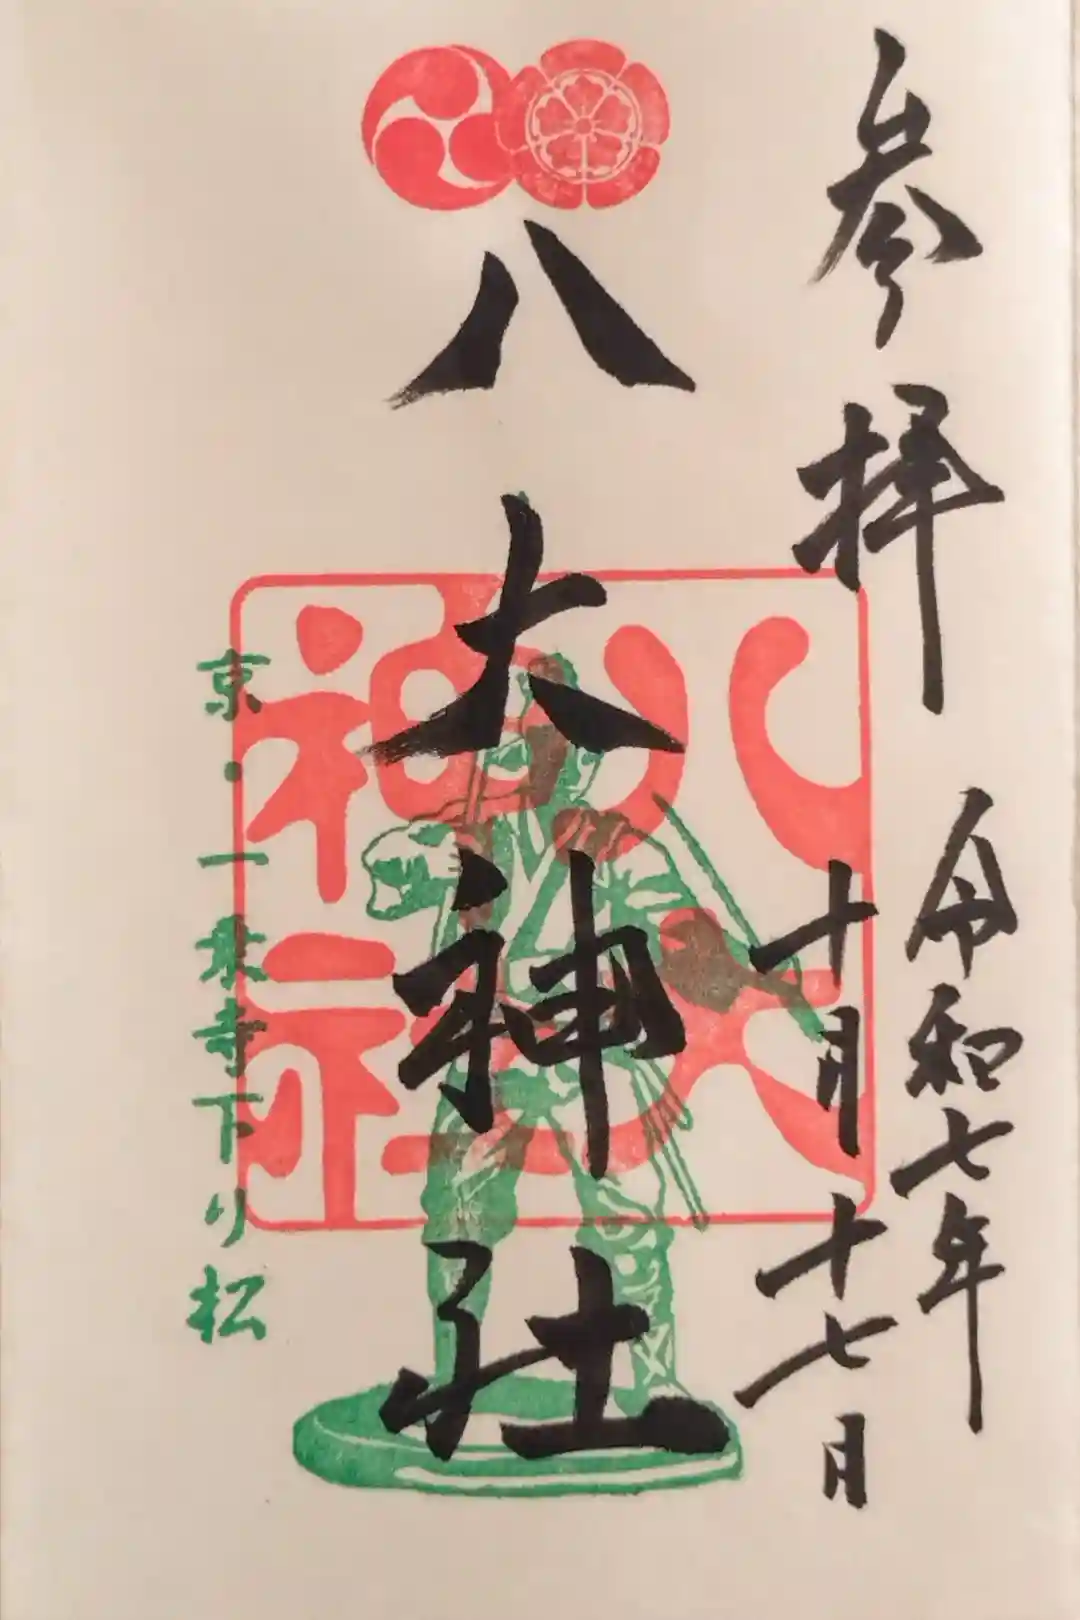 参拝
令和七年
十月十七日
八大神社
八大神社
京・一乗寺下り松